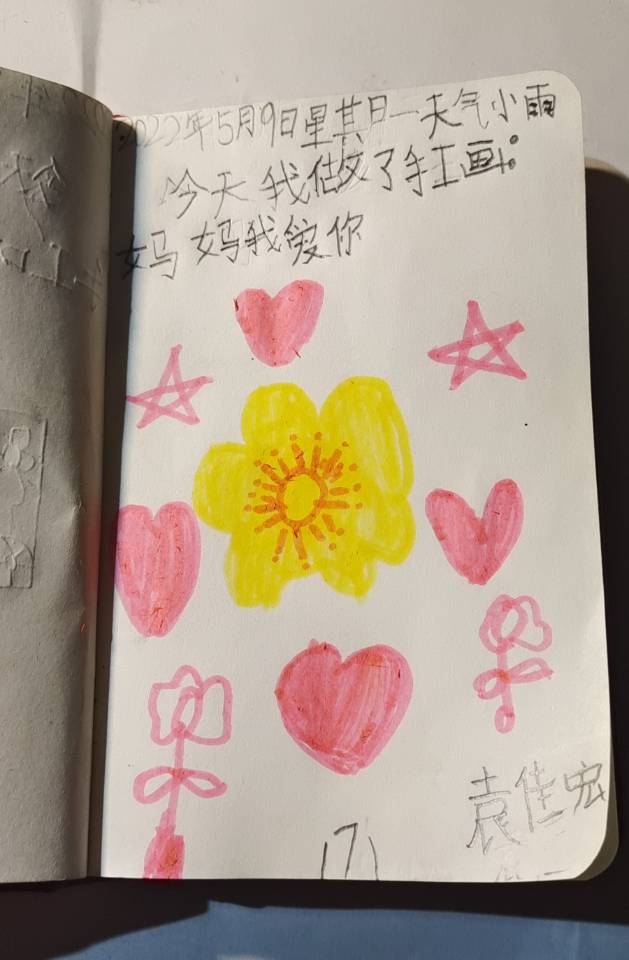 2022年5月9日星其日一天气小雨
今天我做了手工画:
妈妈我爱你
袁佳宏
(7)